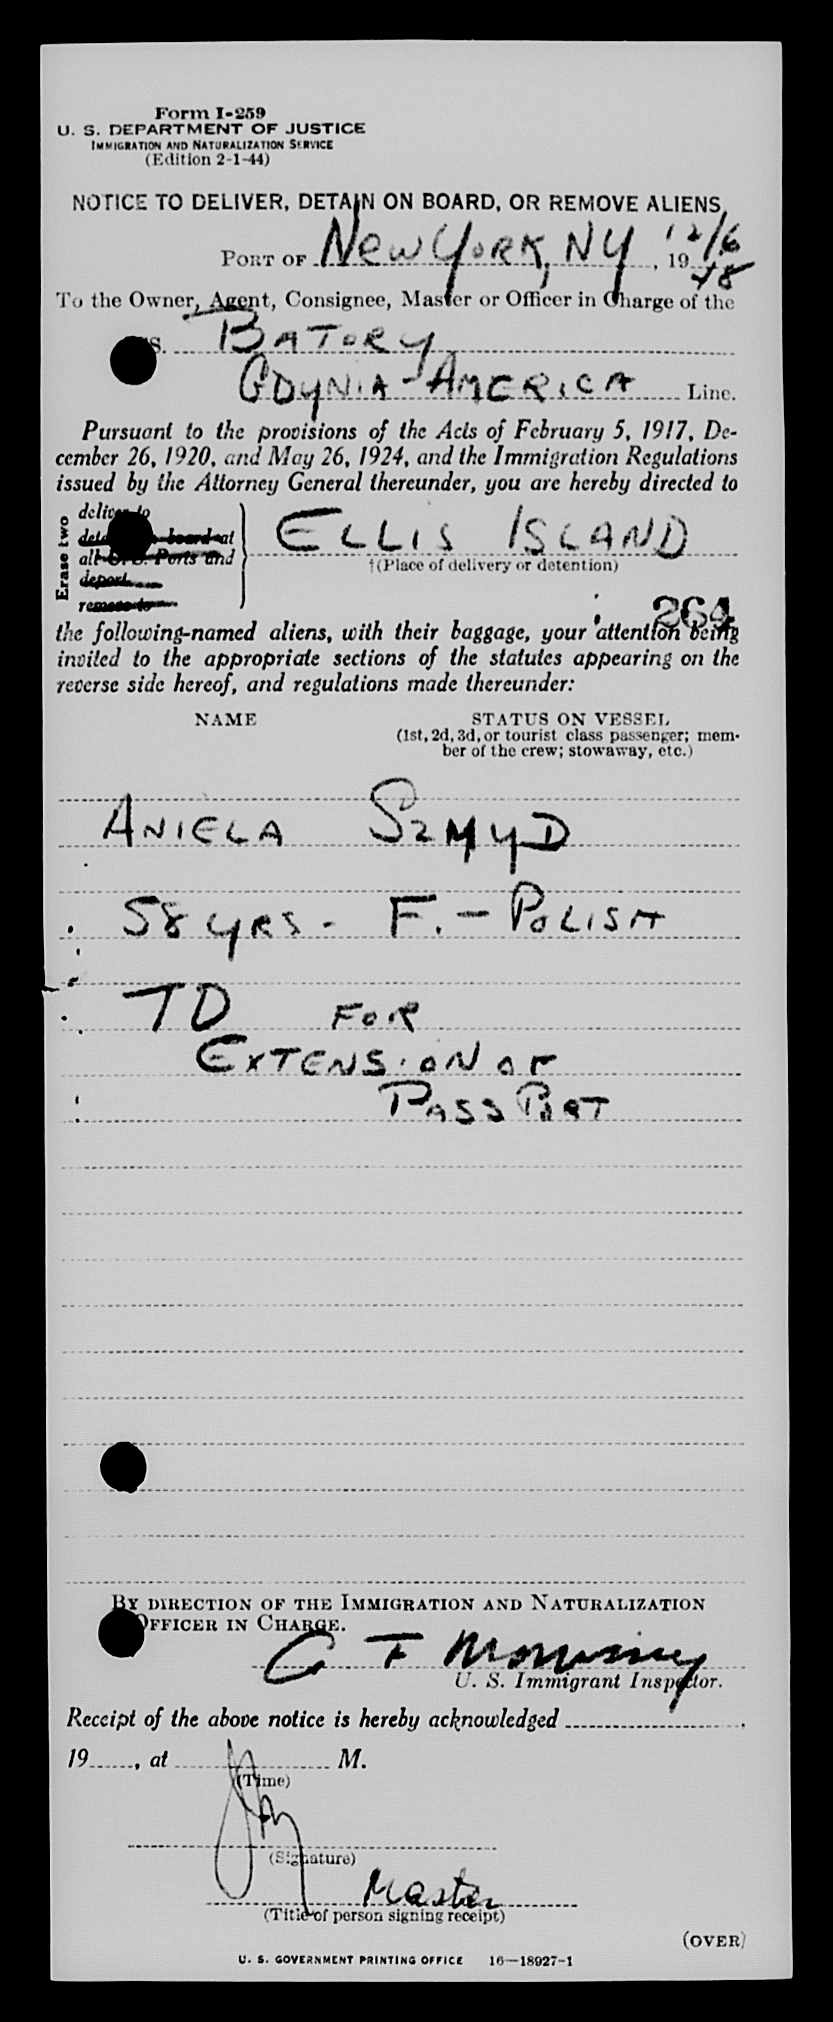 Form I-259
U. S. DEPARTMENT OF JUSTICE
IMMIGRATION AND NATURALIZATION SERVICE
(Edition 2-1-44)
NOTICE TO DELIVER, DETAIN ON BOARD, OR REMOVE ALIENS
PORT OF New York, NY, 12/6 1948
To the Owner, Agent, Consignee, Master or Officer in Charge of the
SS. BATORY
GDYNIA-AMERICA Line.
Pursuant to the provisions of the Acts of February 5, 1917, De-
cember 26, 1920, and May 26, 1924, and the Immigration Regulations
issued by the Attorney General thereunder, you are hereby directed to
Erase two
deliver to
detain on board at
all U. S. Ports and
deport
remove to
ELLIS ISLAND
†(Place of delivery or detention)
264
the following-named aliens, with their baggage, your attention being
invited to the appropriate sections of the statutes appearing on the
reverse side hereof, and regulations made thereunder:
NAME STATUS ON VESSEL
(1st, 2d, 3d, or tourist class passenger; mem-
ber of the crew; stowaway, etc.)
ANIELA SZMYD
58 yrs - F. - POLISH
TD FOR
EXTENSION OF
PASSPORT
BY DIRECTION OF THE IMMIGRATION AND NATURALIZATION
OFFICER IN CHARGE.
C F
U. S. Immigrant Inspector.
Receipt of the above notice is hereby acknowledged
19, at M.
(Time)
(Signature)
Master
(Title of person signing receipt)
(OVER)
U. S. GOVERNMENT PRINTING OFFICE 16—18927-1